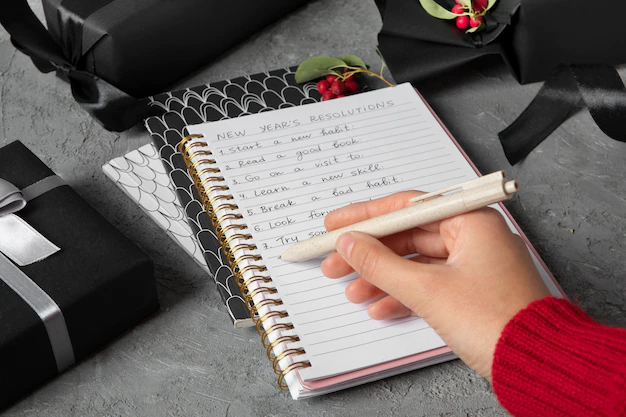 NEW YEAR'S RESOLUTIONS
1. Start a new habit.
2. Read a good book.
3. Go on a visit to.
4. Learn a new skill.
5. Break a bad habit.
6. Look
7. Try